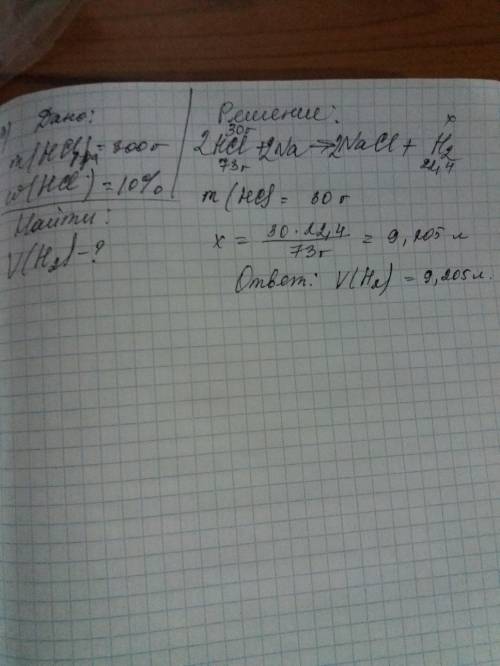 Дано:
m(HCl)р-ра = 300г
w(HCl) = 10%
Найти:
V(H₂) - ?
Решение:
30г x
2HCl + 2Na → 2NaCl + H₂
73г 22,4
m(HCl) = 30 г
x = 30 · 22,4 / 73г = 9,205 л
Ответ: V(H₂) = 9,205л.